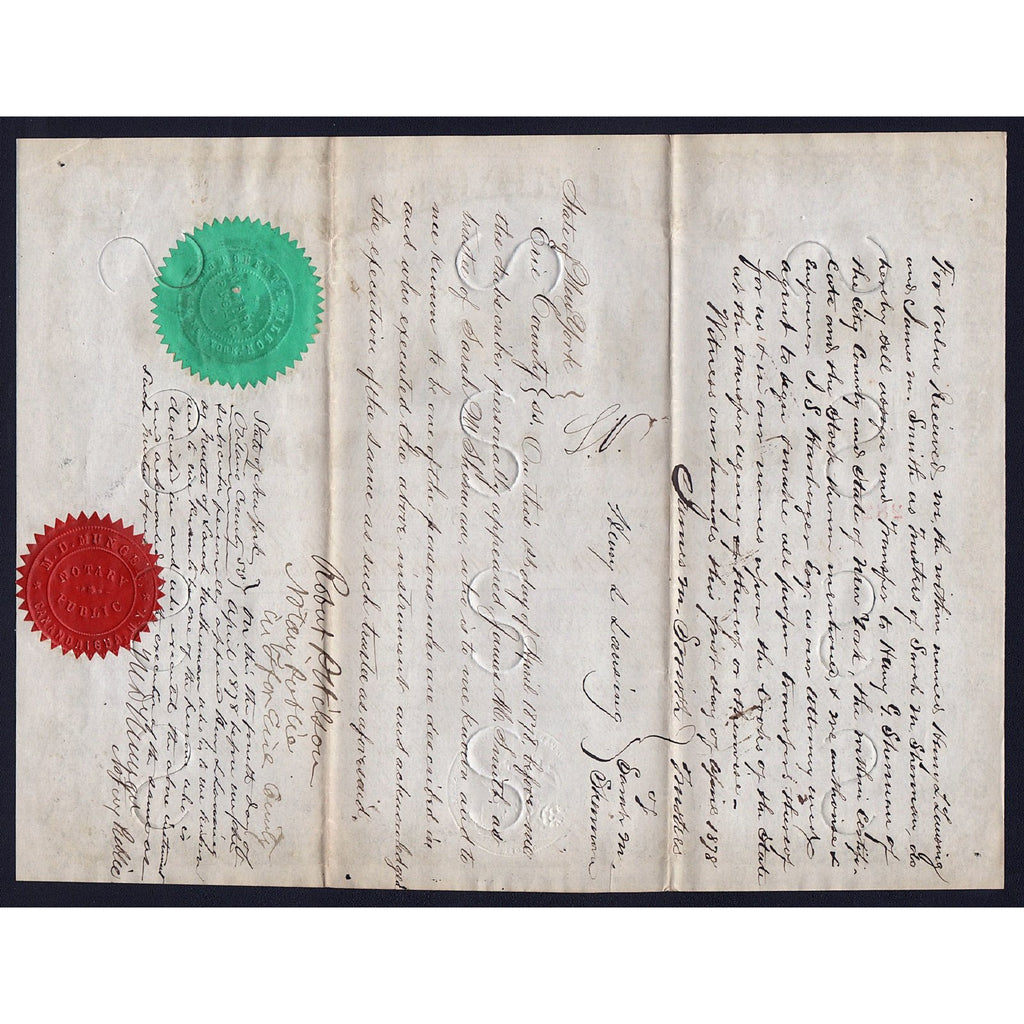 For Value Received we, the within named Henry L Lansing
and James M. Smith as trustees of Sarah M Sherman, do
hereby sell assign and transfer to Henry G. Sherman of
the City County and State of New York, the within Certifi-
cate and the Stock therein mentioned, & we authorize &
empower J S. Harberger Esq. as our attorney and
agent to sign & make all proper transfers thereof
for us & in our names upon the Books of the State
at the transfer agency thereof or otherwise -
Witness our hands this first day of April 1878
James M. Smith } Trustees
Henry L Lansing } of Sarah M. Sherman
State of New York }
Erie County } ss. On this 1st day of April 1878 before me
the subscriber personally appeared James M. Smith, as
trustee of Sarah M Sherman, who is to me known and to
me known to be one of the persons who are described in
and who executed the above instrument and acknowledged
the execution of the same as such trustee aforesaid.
Robert P. Wilson
Notary Public
in & for Erie County
State of New York }
Ontario County } ss On this the first day of
April 1878 before me the
subscriber personally appeared Henry L Lansing
as Trustee of Sarah M Sherman who is to me known
and to me known to be one of the persons who is
described in and who executed the above instrument
and acknowledged the execution of the same as
such Trustee aforesaid
M D Munger
Notary Public
M. D. MUNGER
NOTARY
PUBLIC
CANANDAIGUA, N.Y.